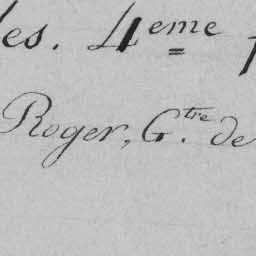 les. 4eme
Roger, G.tre de